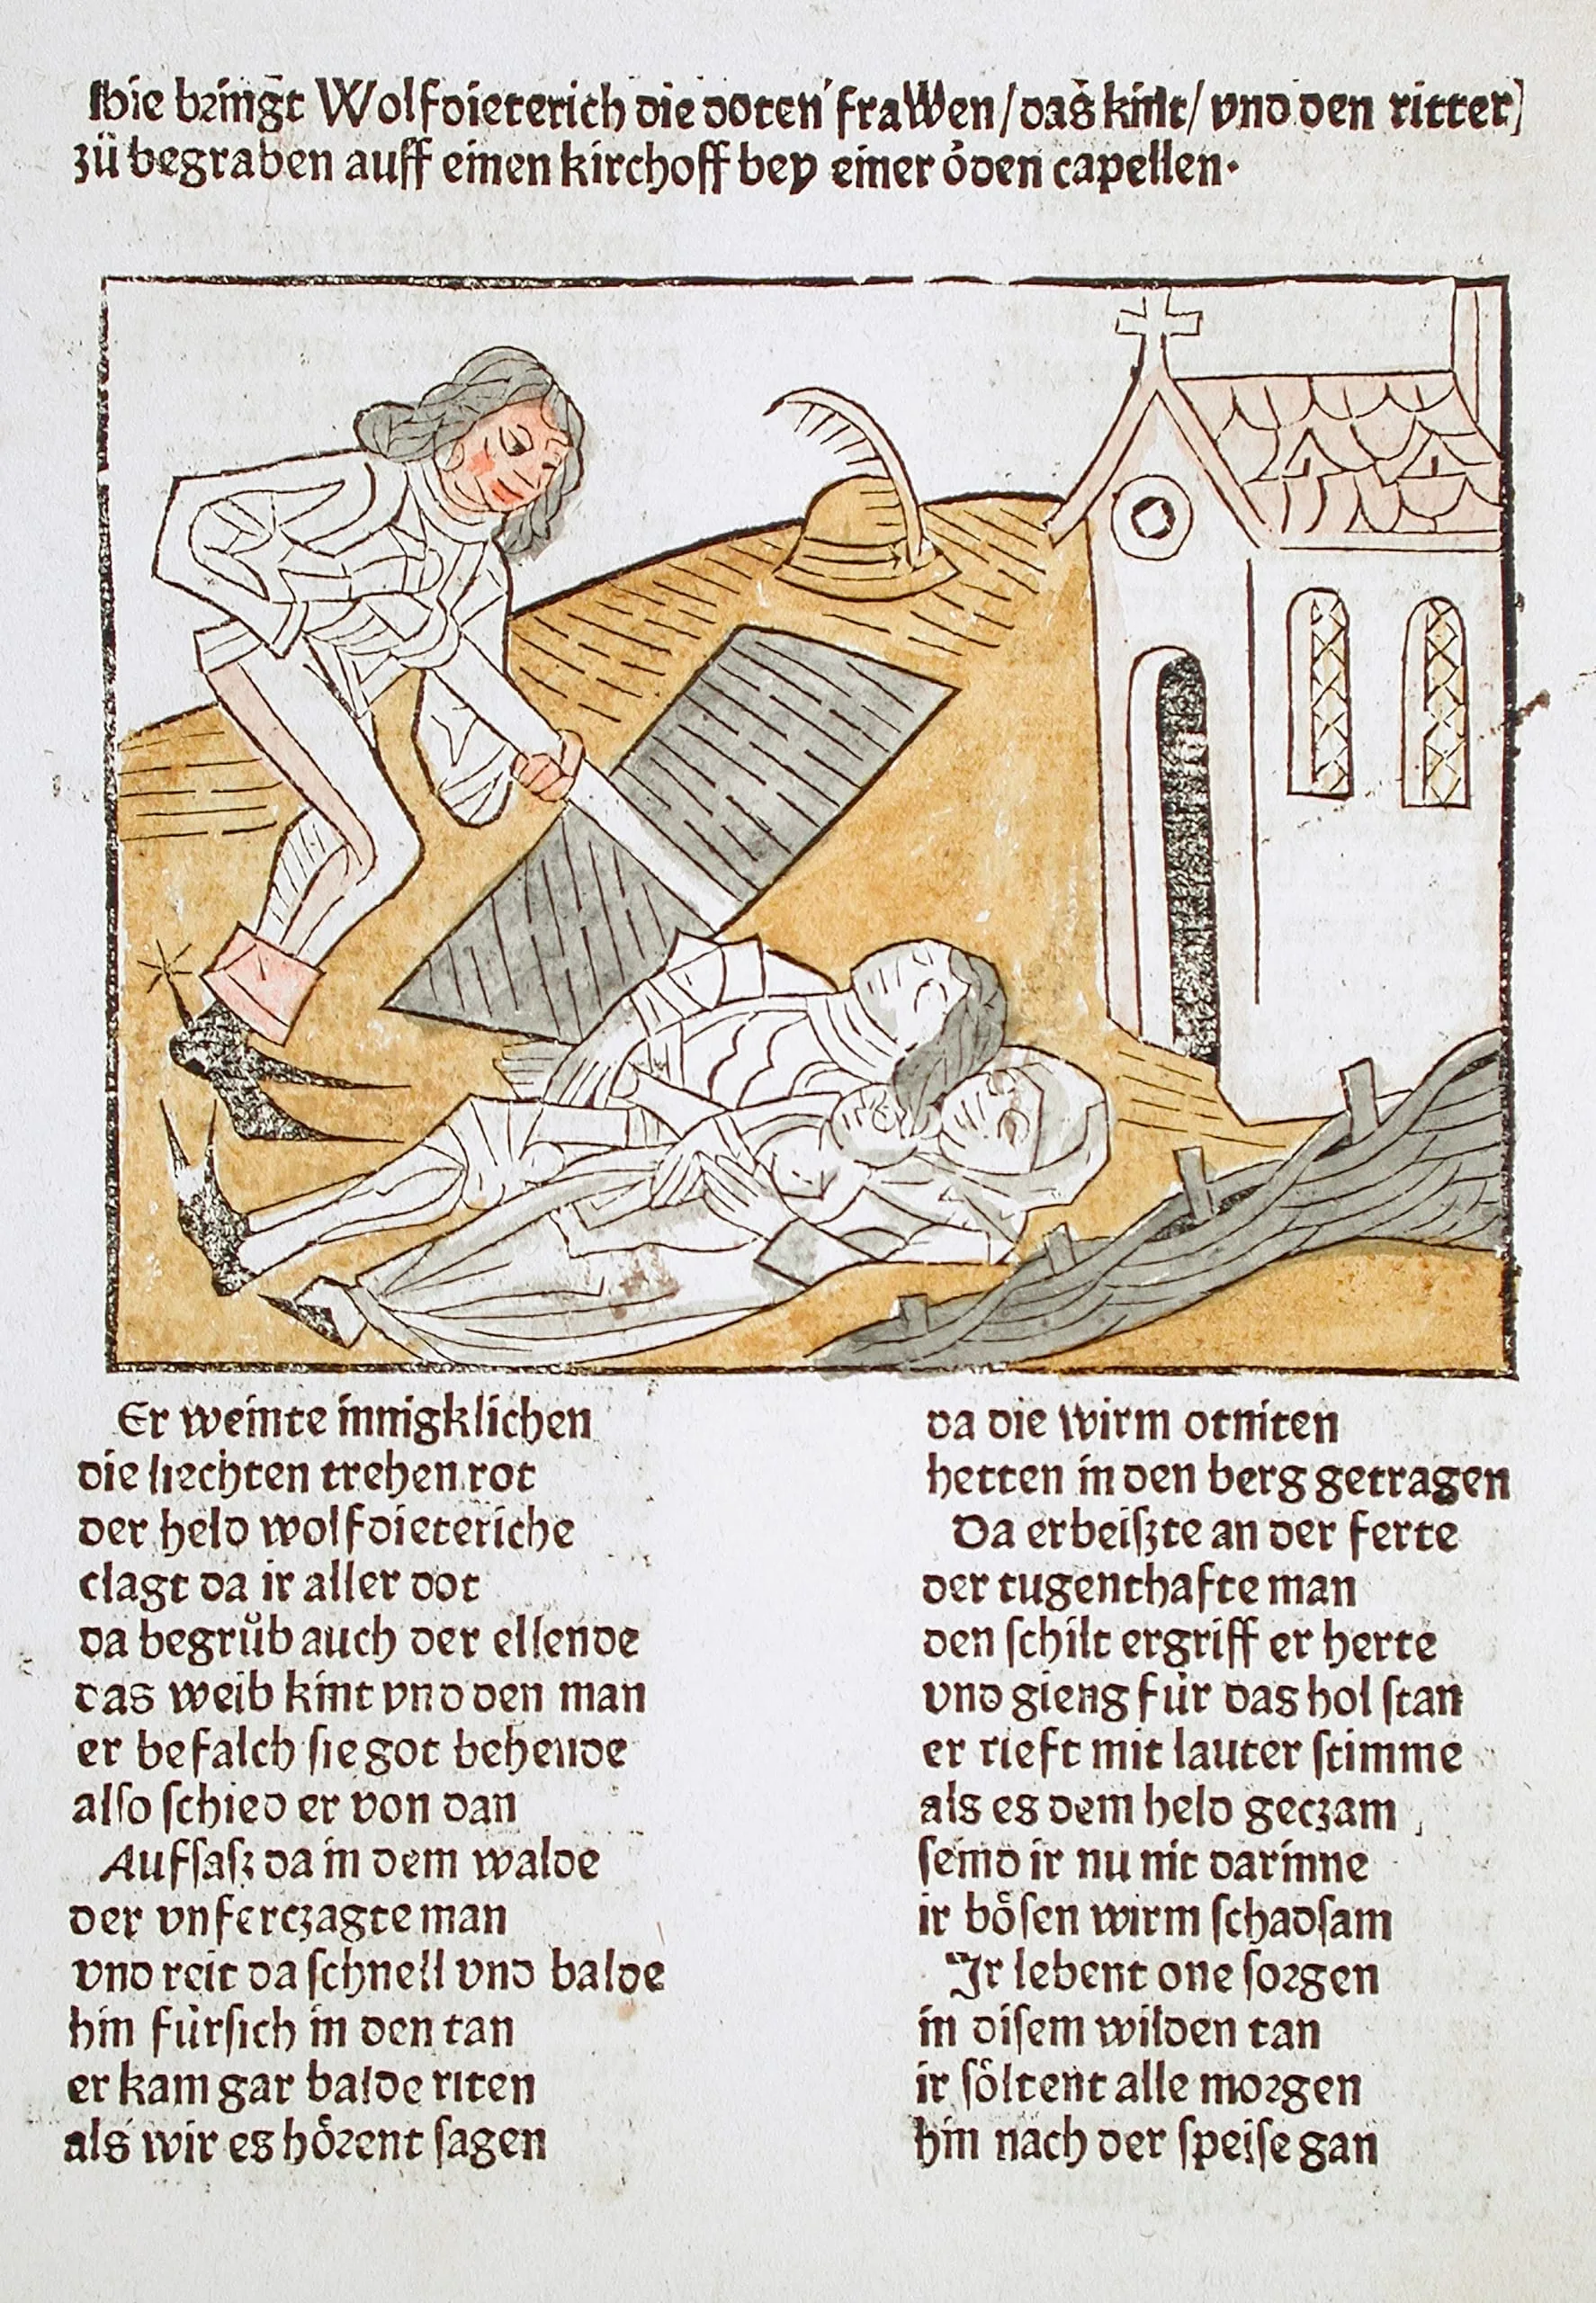 Hie bringt Wolfdieterich die doten frawen/das kint/vnd den ritter
zů begraben auff einen kirchoff bey einer öden capellen.
Er weinte innigklichen
die liechten trehen rot
der held wolfdieteriche
clagt da ir aller dot
da begrůb auch der ellende
das weib kint vnd den man
er befalch sie got behende
also schied er von dan
Aufsasz da in dem walde
der vnferczagte man
vnd reit da schnell vnd balde
hin fürsich in den tan
er kam gar balde riten
als wir es hörent sagen
da die wirm otniten
hetten in den berg getragen
Da erbeiszte an der ferte
der tugenthafte man
den schilt ergriff er herte
vnd gieng für das hol stan
er rieft mit lauter stimme
als es dem held geczam
seind ir nu nit darinne
ir bösen wirm schadsam
Ir lebent one sorgen
in disem wilden tan
ir söltent alle morgen
hin nach der speise gan